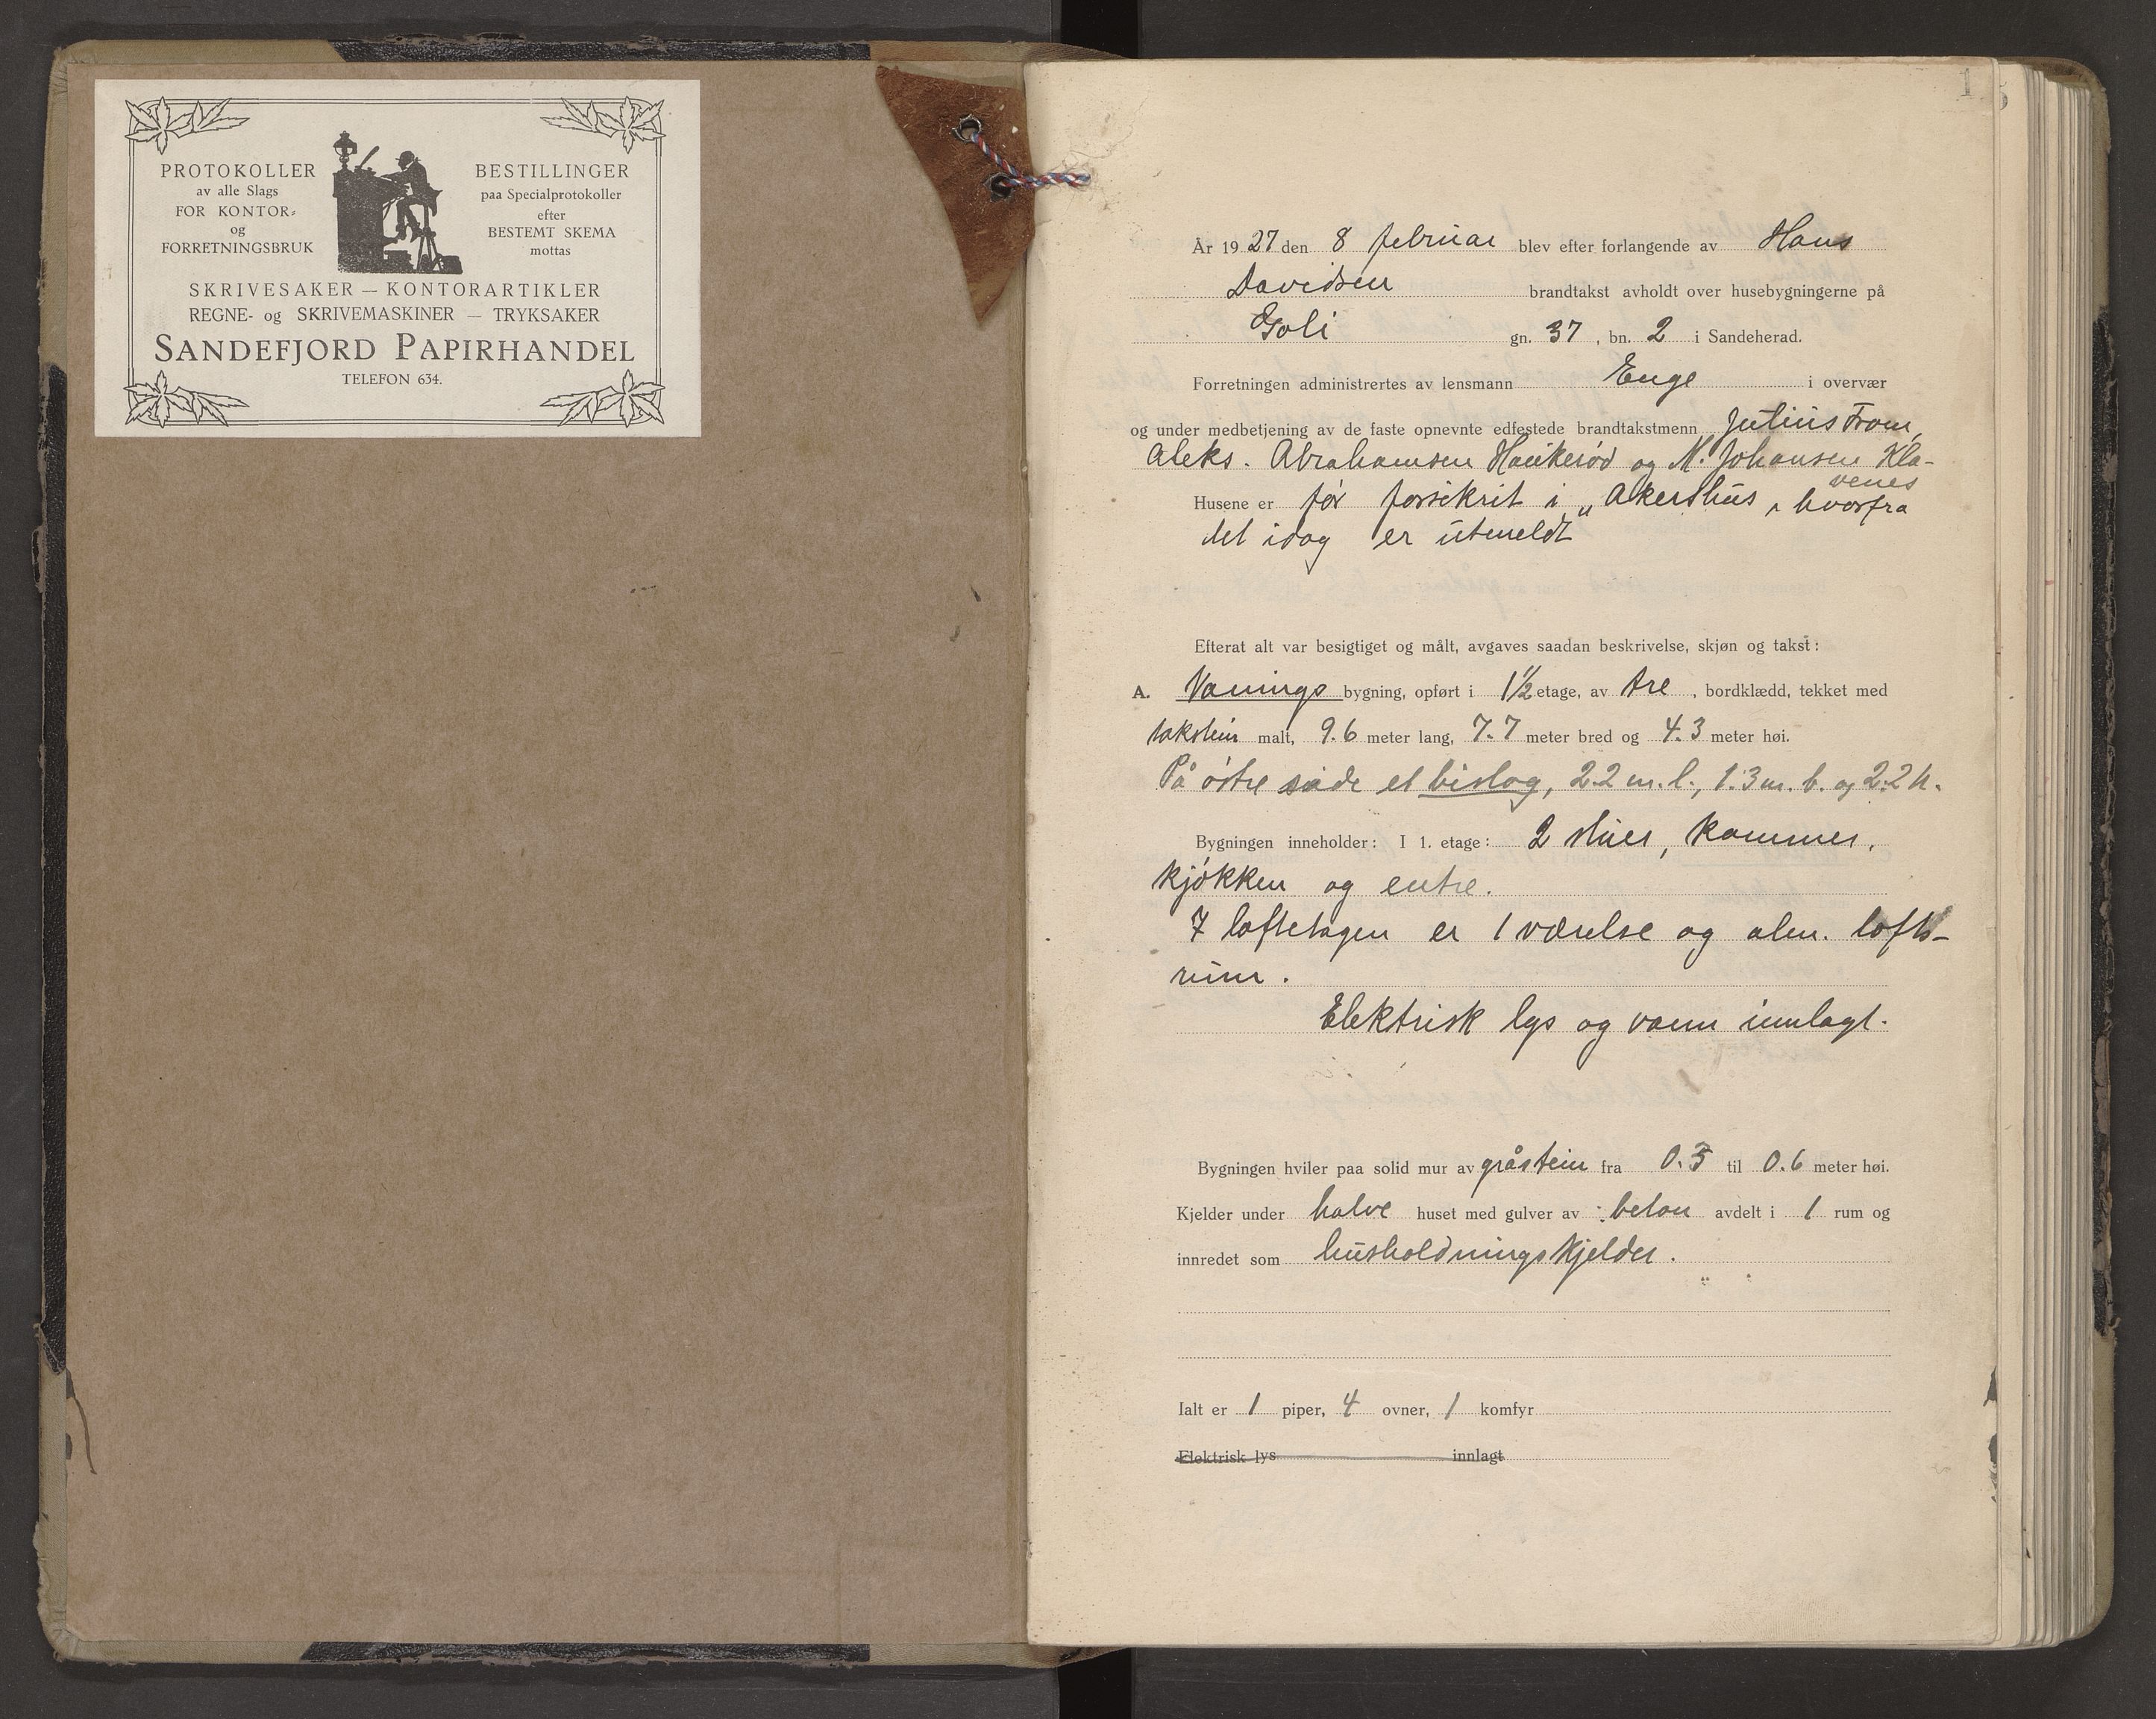 PROTOKOLLER
av alle Slags
FOR KONTOR-
og
FORRETNINGSBRUK
BESTILLINGER
paa Specialprotokoller
efter
BESTEMT SKEMA
mottas
SKRIVESAKER — KONTORARTIKLER
REGNE- og SKRIVEMASKINER — TRYKSAKER
SANDEFJORD PAPIRHANDEL
TELEFON 634.
1
År 1927 den 8 februar blev efter forlangende av Hans
Davidsen brandtakst avholdt over husebygningerne på
Goli gn. 37, bn. 2 i Sandeherad.
Forretningen administrertes av lensmann Enge i overvær
og under medbetjening av de faste opnevnte edfestede brandtakstmenn Julius From,
Aleks. Abrahamsen Haukerød og M. Johansen Kla-
venes
Husene er før forsikrit i „Akershus, hvorfra
det idag er utmeldt
Efterat alt var besigtiget og målt, avgaves saadan beskrivelse, skjøn og takst:
A. Vaanings bygning, opført i 1½ etage, av tre, bordklædd, tekket med
takstein malt, 9.6 meter lang, 7.7 meter bred og 4.3 meter høi.
På østre side et bislag, 2.2 m. l., 1.3 m. b. og 2.2 h.
Bygningen inneholder: I 1. etage: 2 stuer, kammer,
kjøkken og entre.
I loftetagen er 1 værelse og alm. lofts-
rum.
Elektrisk lys og vann innlagt.
Bygningen hviler paa solid mur av gråstein fra 0.3 til 0.6 meter høi.
Kjelder under halve huset med gulver av beton avdelt i 1 rum og
innredet som husholdningskjelder.
Ialt er 1 piper, 4 ovner, 1 komfyr
Elektrisk lys innlagt